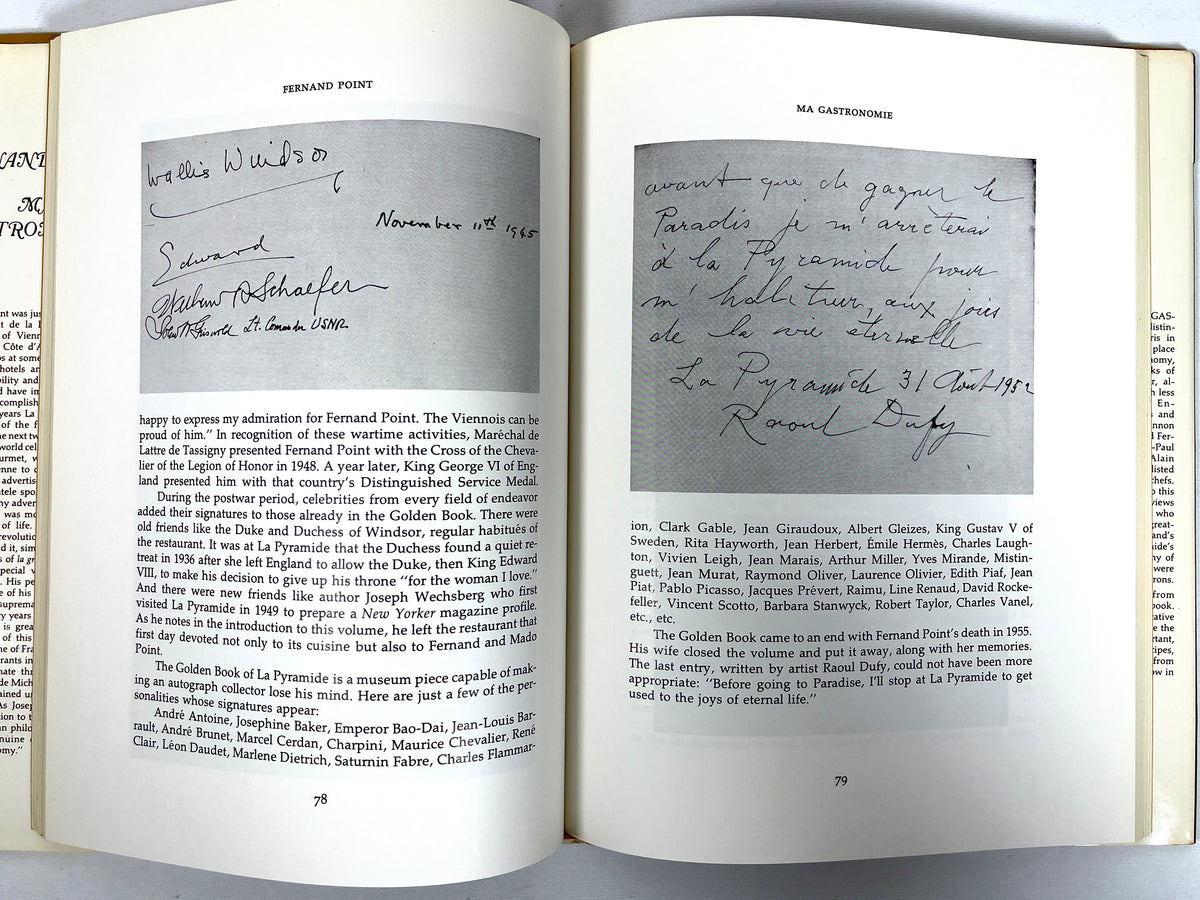 FERNAND POINT
Wallis Windsor
November 11th 1945
Edward
Schaefer
Lt. Comander USNR
happy to express my admiration for Fernand Point. The Viennois can be
proud of him." In recognition of these wartime activities, Maréchal de
Lattre de Tassigny presented Fernand Point with the Cross of the Cheva-
lier of the Legion of Honor in 1948. A year later, King George VI of Eng-
land presented him with that country's Distinguished Service Medal.
During the postwar period, celebrities from every field of endeavor
added their signatures to those already in the Golden Book. There were
old friends like the Duke and Duchess of Windsor, regular habitués of
the restaurant. It was at La Pyramide that the Duchess found a quiet re-
treat in 1936 after she left England to allow the Duke, then King Edward
VIII, to make his decision to give up his throne "for the woman I love."
And there were new friends like author Joseph Wechsberg who first
visited La Pyramide in 1949 to prepare a New Yorker magazine profile.
As he notes in the introduction to this volume, he left the restaurant that
first day devoted not only to its cuisine but also to Fernand and Mado
Point.
The Golden Book of La Pyramide is a museum piece capable of mak-
ing an autograph collector lose his mind. Here are just a few of the per-
sonalities whose signatures appear:
André Antoine, Josephine Baker, Emperor Bao-Dai, Jean-Louis Bar-
rault, André Brunet, Marcel Cerdan, Charpini, Maurice Chevalier, René
Clair, Léon Daudet, Marlene Dietrich, Saturnin Fabre, Charles Flammar-
78
MA GASTRONOMIE
avant que de gagner le
Paradis je m'arrèterai
à la Pyramide pour
m'habituer aux joies
de la vie éternelle
La Pyramide 31 Août 1952
Raoul Dufy
ion, Clark Gable, Jean Giraudoux, Albert Gleizes, King Gustav V of
Sweden, Rita Hayworth, Jean Herbert, Émile Hermès, Charles Laugh-
ton, Vivien Leigh, Jean Marais, Arthur Miller, Yves Mirande, Mistin-
guett, Jean Murat, Raymond Oliver, Laurence Olivier, Edith Piaf, Jean
Piat, Pablo Picasso, Jacques Prévert, Raimu, Line Renaud, David Rocke-
feller, Vincent Scotto, Barbara Stanwyck, Robert Taylor, Charles Vanel,
etc., etc.
The Golden Book came to an end with Fernand Point's death in 1955.
His wife closed the volume and put it away, along with her memories.
The last entry, written by artist Raoul Dufy, could not have been more
appropriate: "Before going to Paradise, I'll stop at La Pyramide to get
used to the joys of eternal life."
79